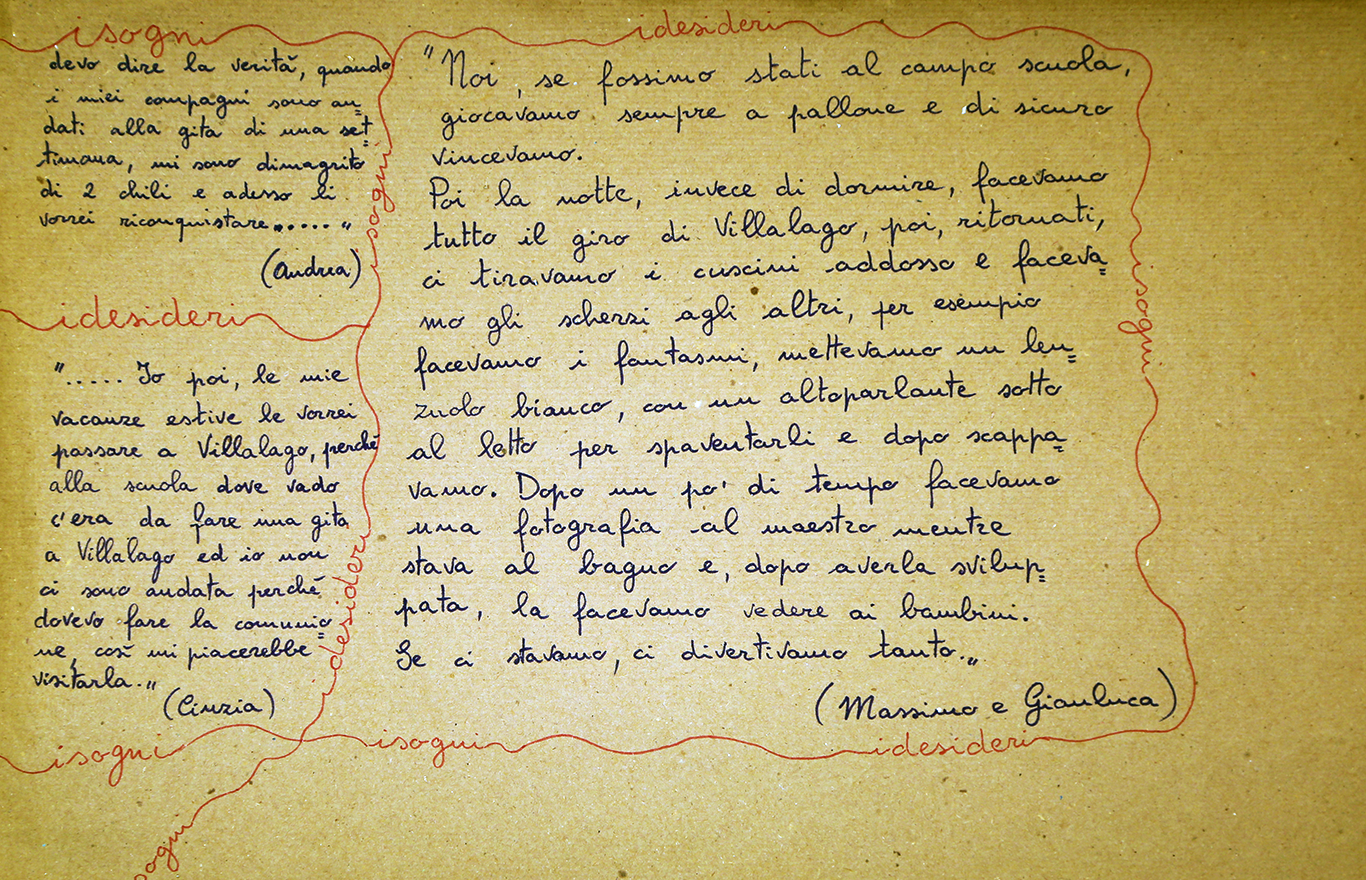 isogni
devo dire la verità, quando
i miei compagni sono an=
dati alla gita di una set=
timana, mi sono dimagrito
di 2 chili e adesso li
vorrei riconquistare...... „
(Andrea)
isogni
idesideri
"..... Io poi, le mie
vacanze estive le vorrei
passare a Villalago, perché
alla scuola dove vado
c'era da fare una gita
a Villalago ed io non
ci sono andata perché
dovevo fare la comunio=
ne, così mi piacerebbe
visitarla. „
(Cinzia)
idesideri
isogni
idesideri
"Noi, se fossimo stati al campo scuola,
giocavamo sempre a pallone e di sicuro
vincevamo.
Poi la notte, invece di dormire, facevamo
tutto il giro di Villalago, poi, ritornati,
ci tiravamo i cuscini addosso e faceva=
mo gli scherzi agli altri, per esempio
facevamo i fantasmi, mettevamo un len=
zuolo bianco, con un altoparlante sotto
al letto per spaventarli e dopo scappa=
vamo. Dopo un po' di tempo facevamo
una fotografia al maestro mentre
stava al bagno e, dopo averla svilup=
pata, la facevamo vedere ai bambini.
Se ci stavamo, ci divertivamo tanto. „
(Massimo e Gianluca)
isogni
isogni
idesideri
sogni